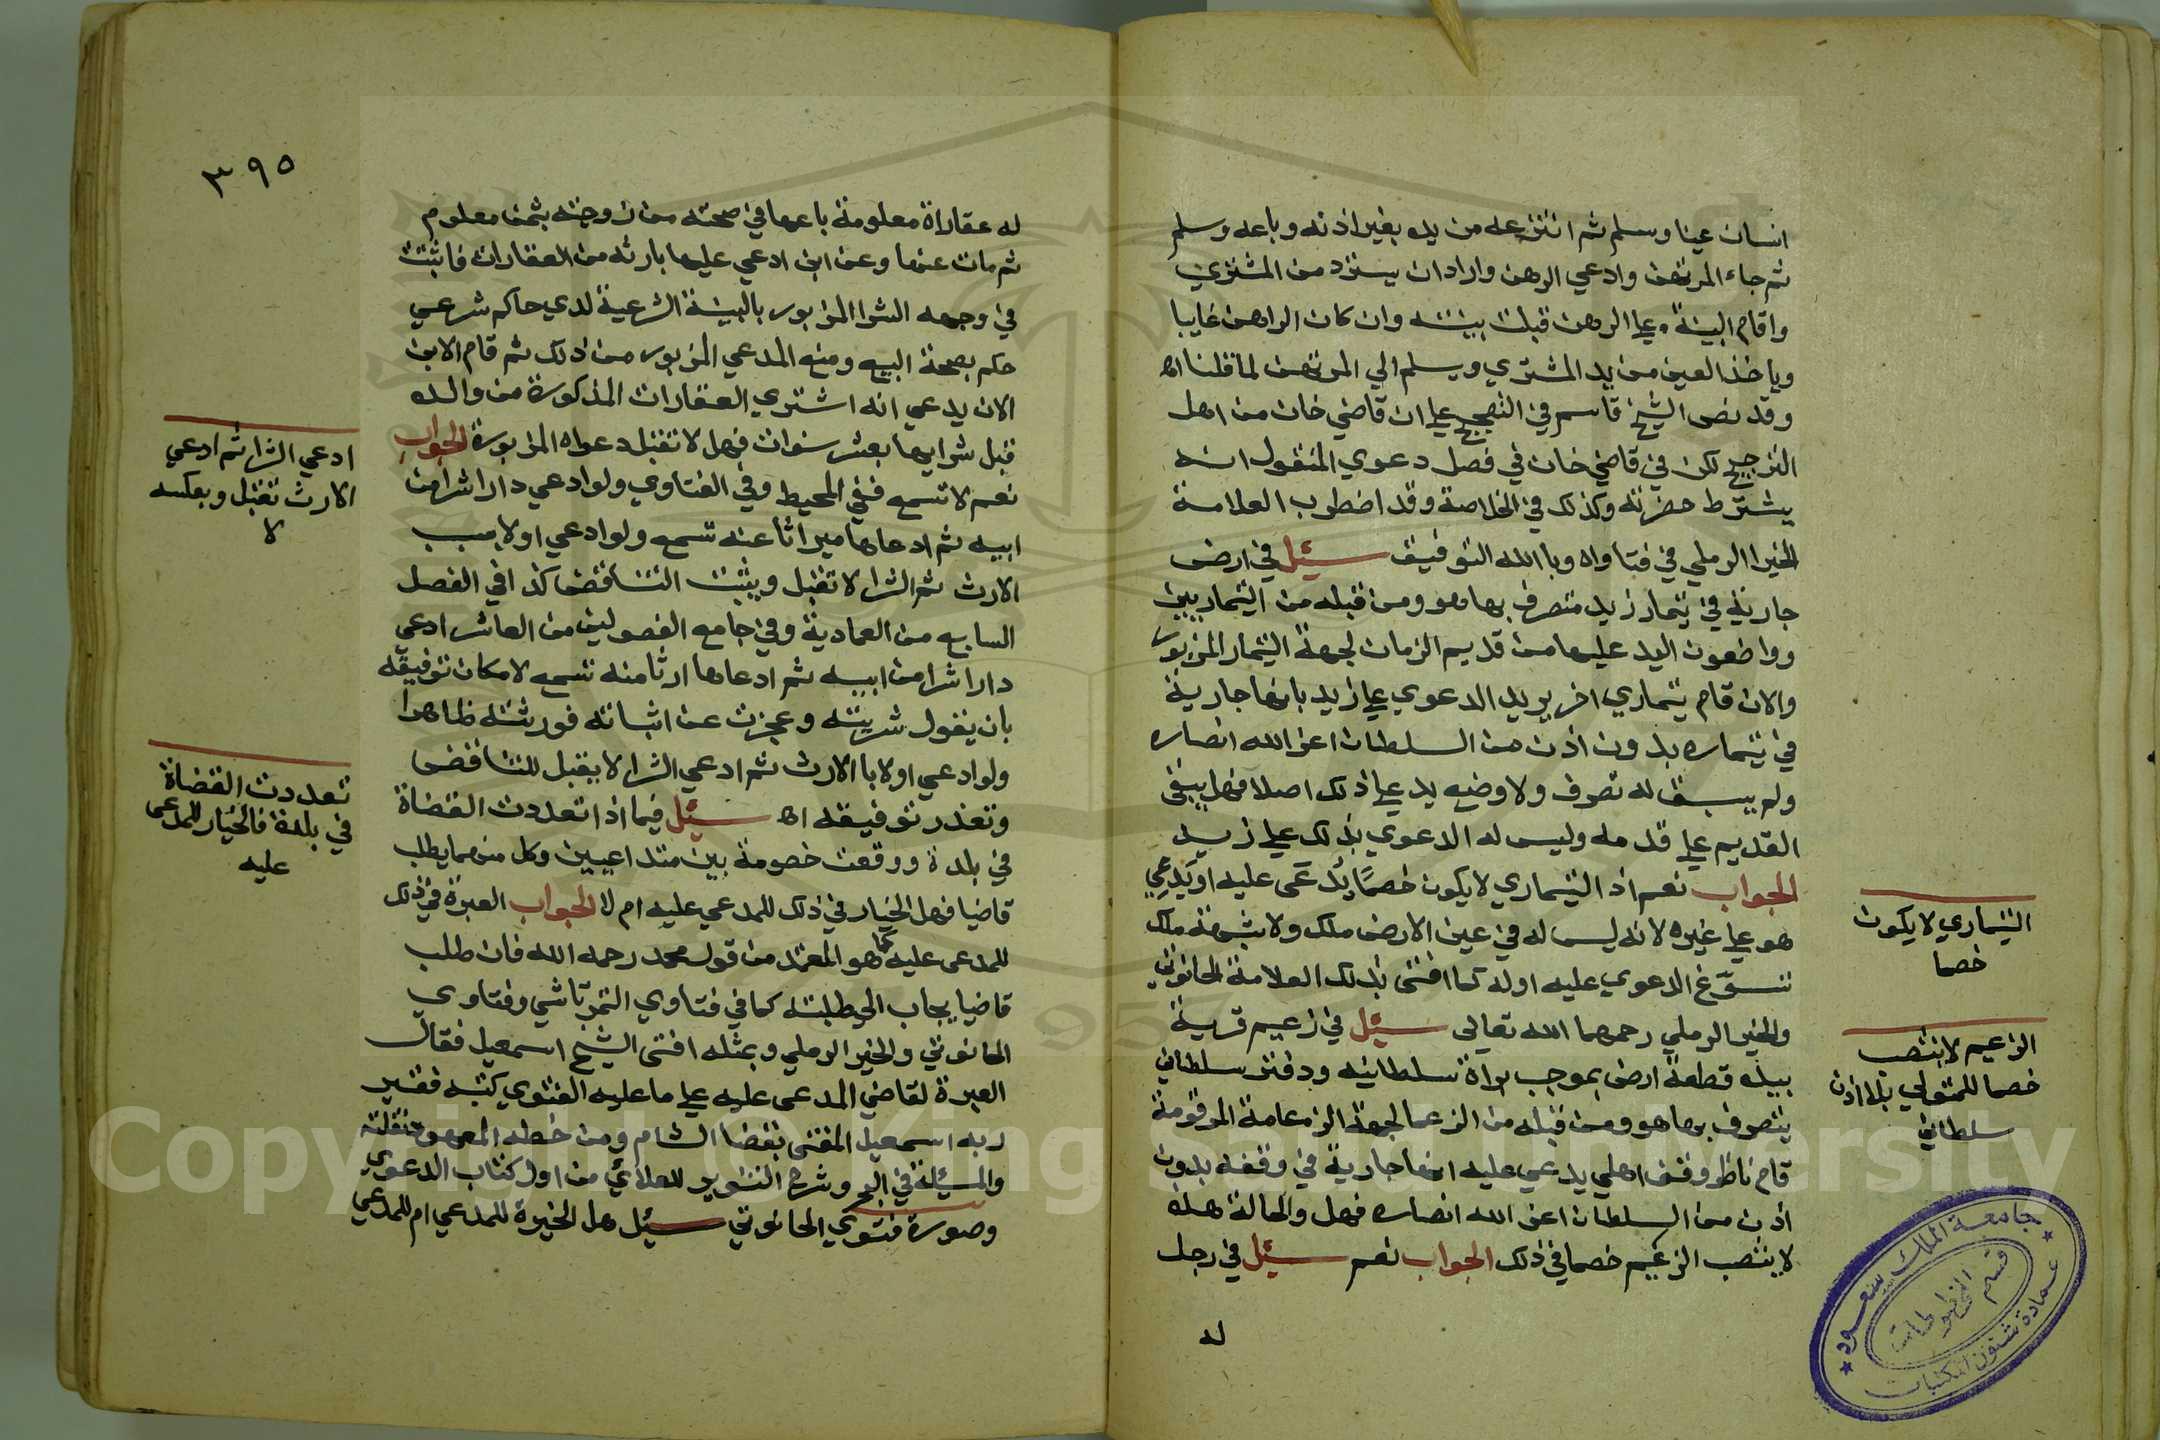 انسان عينا وسلم ثم انتزعه من يده بغير اذنه وباعه وسلم
ثم جاء المرتهن وادعي الرهن واراد ان يسترد من المشتري
واقام البينة علي الرهن قبلت بينته وان كان الراهن غايبا
وياخذ العين من يد المشتري ويسلم الي المرتهن لما قلنا اه
وقد نص الشيخ قاسم في التصحيح علي ان قاضي خان من اهل
الترجيح لكن في قاضي خان في فصل دعوي المنقول انه
يشترط حضرته وكذلك في الخلاصة وقد اضطرب العلامة
الخير الرملي في فتاواه وبا الله التوفيق سئيل في ارض
جارية في تيمار زيد متصرف بها هو ومن قبله من التيماريين
وواضعون اليد عليها من قديم الزمان لجهة التيمار المزبور
والان قام تيماري اخر يريد الدعوي علي زيد بانها جارية
في تيماره بدون اذن من السلطان اعز الله انصاره
ولم يسبق له تصرف ولا وضع يد علي ذلك اصلا فهل يبقي
القديم علي قدمه وليس له الدعوي بذلك علي زيد
الجواب نعم اذ التيماري لا يكون خصمًا يُدعَى عليه او يَدعِي
هو علي غيره لانه ليس له في عين الارض ملك ولا شبهة ملك
تسوّغ الدعوي عليه اوله كما افتى بذلك العلامة الحانوتي
والخير الرملي رحمهما الله تعالى سئيل في زعيم قرية
بيده قطعة ارض بموجب براة سلطانيه ودفتر سلطاني
يتصرف بها هو ومن قبله من الزعما لجهة الزعامة المرقومة
قام ناظر وقف اهلي يدعي عليه انها جارية في وقفه بدون
اذن من السلطان اعز الله انصاره فهل والحالة هذه
لا ينتصب الزعيم خصما في ذلك الجواب نعم سئيل في رجل
له
التيماري لا يكون
خصما
الزعيم لا ينتصب
خصما للمتولي بلا اذن
سلطاني
جامعة الملك سعود
قسم المخطوطات
عمادة شئون المكتبات
٣٩٥
له عقاراة معلومة باعها في صحته من زوجته بثمن معلوم
ثم مات عنها وعن ابن ادعي عليها بارثه من العقارات فاثبتت
في وجهه الشرا المزبور بالبينة الشرعية لدي حاكم شرعي
حكم بصحة البيع ومنع المدعي المزبور من ذلك ثم قام الابن
الان يدعي انه اشتري العقارات المذكورة من والده
قبل شرايها بعشر سنوات فهل لا تقبل دعواه المزبورة الجواب
نعم لا تسمع ففي المحيط وفي الفتاوي ولو ادعي دارا شرا من
ابيه ثم ادعاها ميراثا عنه تسمع ولو ادعي اولا بسبب
الارث ثم الشرا لا تقبل ويثبت التناقض كذا في الفصل
السابع من العمادية وفي جامع الفصولين من العاشر ادعي
دارا شرا من ابيه ثم ادعاها ارثا منه تسمع لامكان توفيقه
بان يقول شريته وعجزت عن اثباته فورثته ظاهرا
ولو ادعي اولا با الارث ثم ادعي الشرا لا يقبل للتناقض
وتعذر توفيقه اه سئيل فيما اذا تعددت القضاة
في بلدة ووقعت خصومة بين متداعيين وكل منهما يطلب
قاضيا فهل الخيار في ذلك للمدعي عليه ام لا الجواب العبرة في ذلك
للمدعى عليه كما هو المعتمد من قول محمد رحمه الله فان طلب
قاضيا يجاب الي طلبته كما في فتاوي التمرتاشي وفتاوي
الحانوتي والخير الرملي وبمثله افتى الشيخ اسمعيل فقال
العبرة لقاضي المدعى عليه علي ما عليه الفتوي كتبه فقير
ربه اسمعيل المفتى بقضا الشام ومن خطه المعهود نقلته
والمسئلة في البحر وشرح التنوير للعلائي من اول كتاب الدعوي
وصورة فتوي الحانوتي سئيل هل الخيرة للمدعي ام للمدعي
ادعي الشرا ثم ادعي
الارث تقبل وبعكسه
لا
تعددت القضاة
في بلدة فالخيار للمدعى
عليه
Copyright © King Saud University